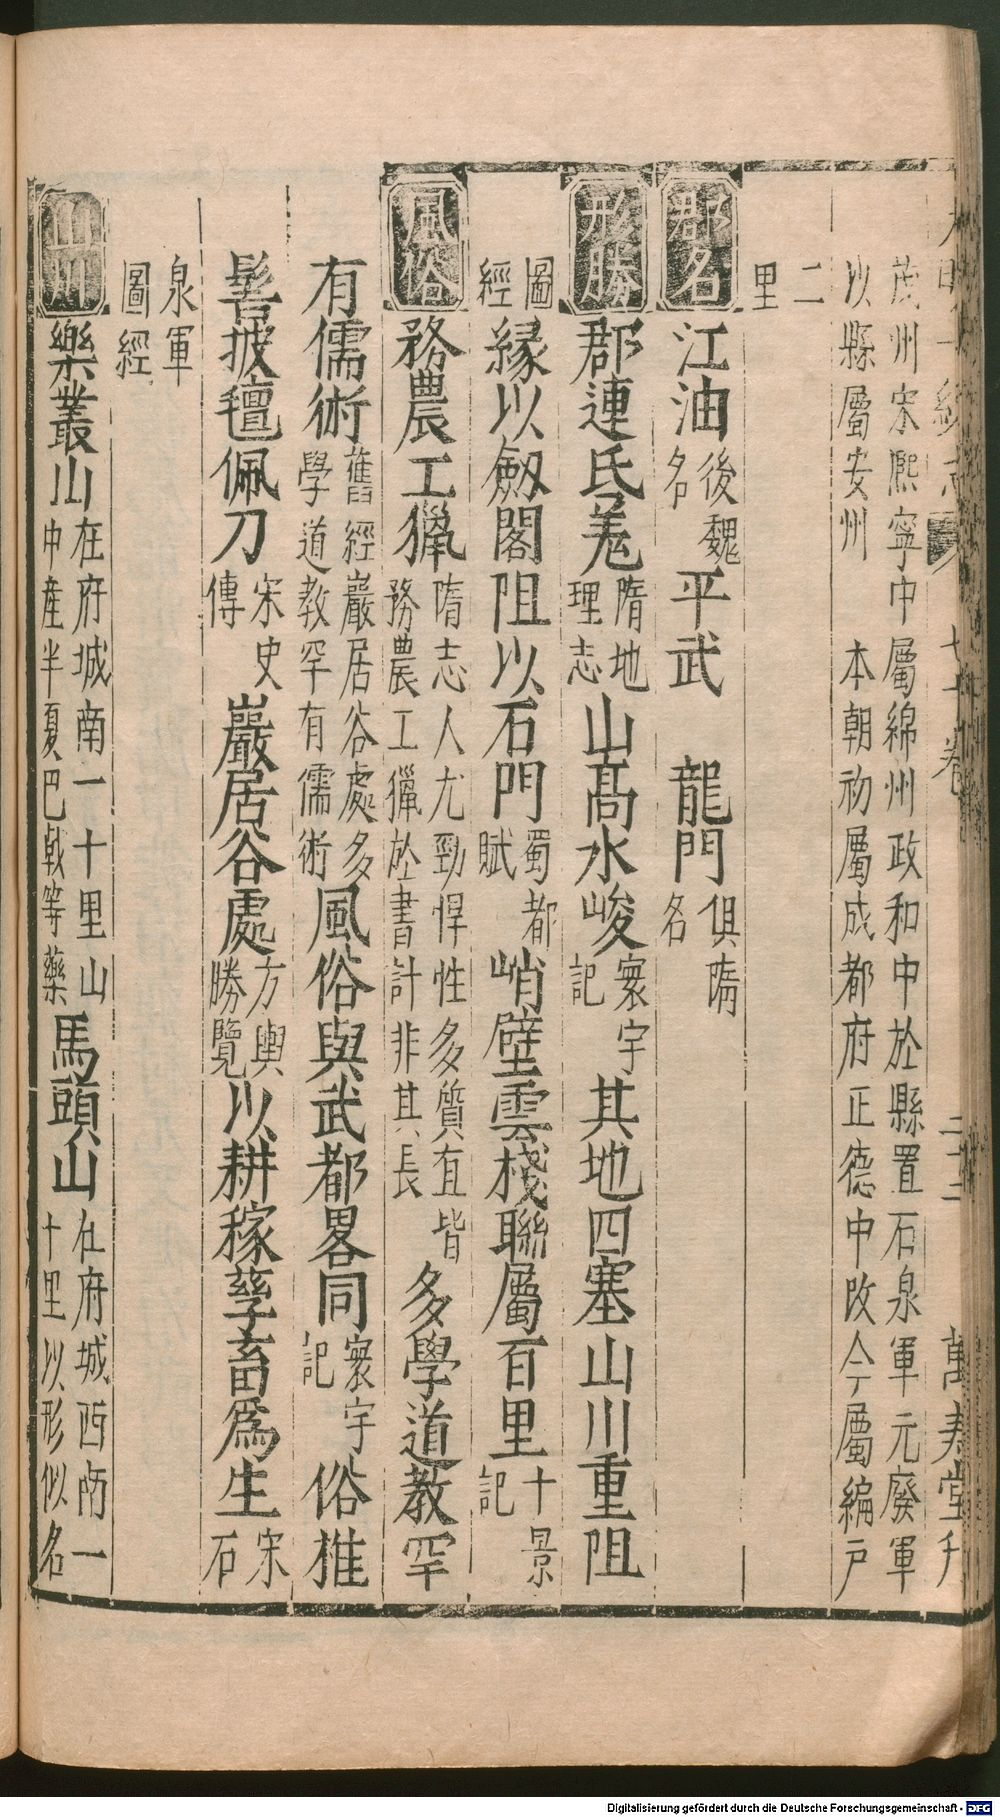 大明一統志 七十卷 萬壽堂刊
茂州宋熙寧中屬綿州政和中於縣置石泉軍元廢軍
以縣屬安州 本朝初屬成都府正德中改今屬編戸
二
里
郡名 江油 後魏名 平武 龍門 俱隋名
形勝 郡連氐羌 隋地理志 山高水峻 寰宇記 其地四塞山川重阻
圖經 縁以劔閣阻以石門 蜀都賦 峭壁雲棧聯屬百里 十景記
風俗 務農工獵 隋志人尤勁悍性多質直皆務農工獵於書計非其長 多學道教罕
有儒術 舊經巖居谷處多學道教罕有儒術 風俗與武都畧同 寰宇記 俗椎
髻披氊佩刀 宋史傳 巖居谷處 方輿勝覽 以耕稼孳畜爲生 宋石
泉軍
圖經
山川 樂叢山 在府城南一十里山中産半夏巴戟等藥 馬頭山 在府城西南一十里以形似名
Digitalisierung gefördert durch die Deutsche Forschungsgemeinschaft - DFG